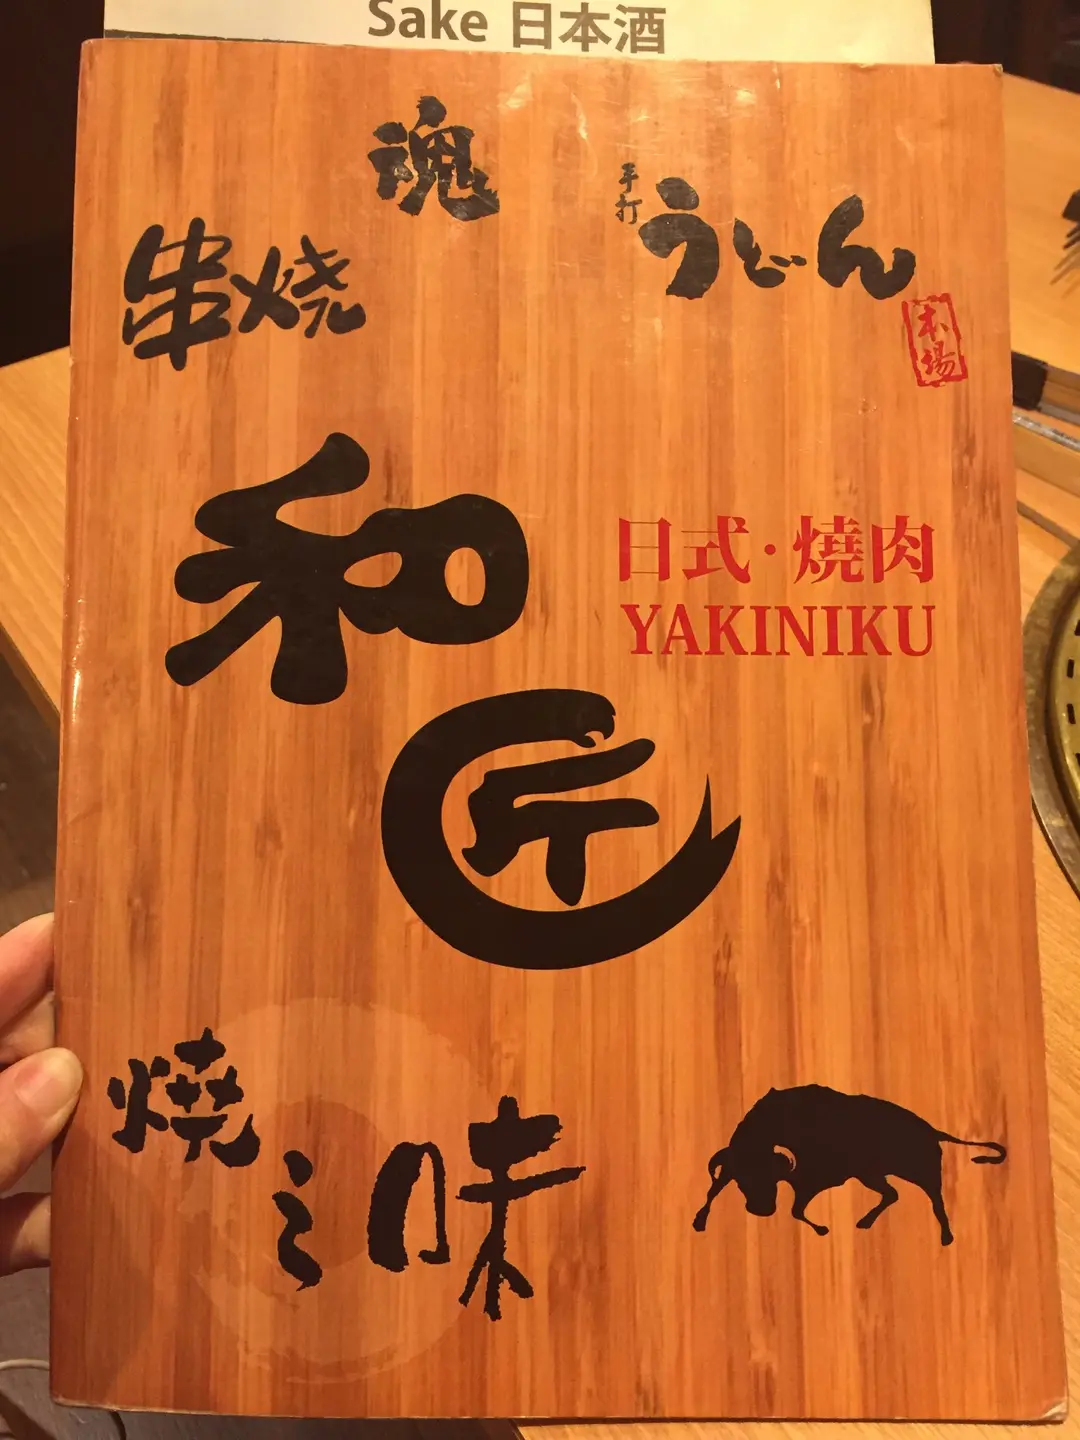 Sake 日本酒
魂
手打
うどん
串燒
本場
和
日式·燒肉
YAKINIKU
匠
燒之味